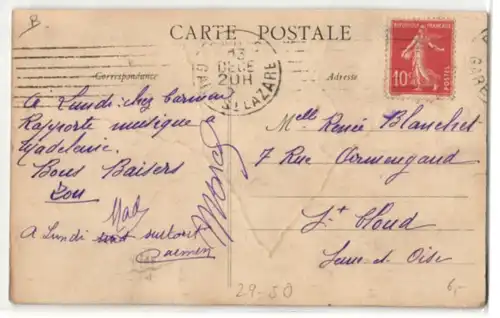 B
CARTE POSTALE
Correspondance
Adresse
GARE St LAZARE
13
DECE
20H
REPUBLIQUE FRANÇAISE
10c
POSTES
GARE
A Lundi chez Carmen
Rapporte musique à
Madeleine.
Bons Baisers
Zou
Mad
Marcel
A Lundi surtout
Carmen
Melle Renée Blanchet
7 Rue Armengaud
St Cloud
Seine et Oise
29-50
6,-